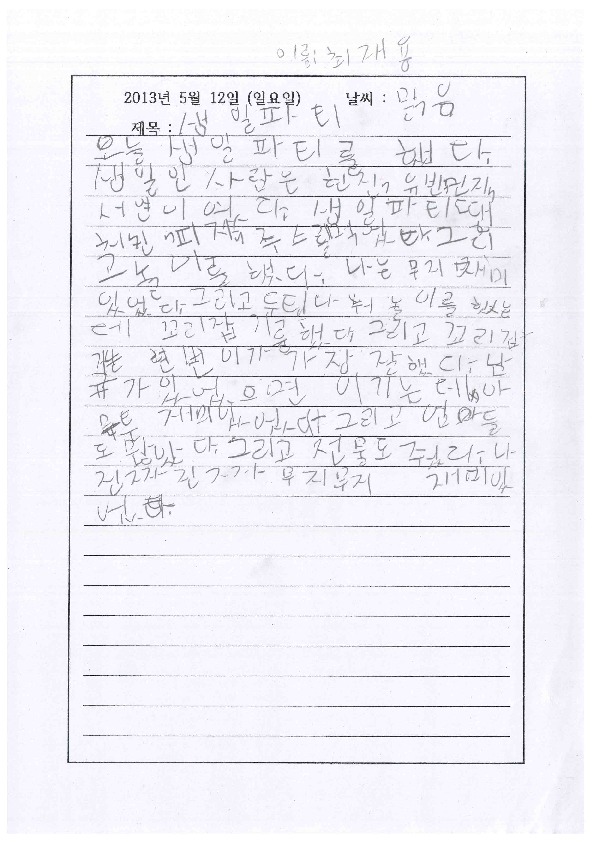 이름: 최재용
2013년 5월 12일 (일요일) 날씨 : 맑음
제목 : 생일파티
오늘 생일파티를 했다.
생일인 사람은 현진, 유빈,민지,
서변이 여 다. 생일파티 때
치킨 피잡 주스를 다 그리
고 놀 이를 했다. 나는 무지 재미
있었다 그리고 두팀다 놀 이를 했는
데 꼬리잡 기를 했다 그리고 꼬리잡
기는 변이가 가장 잘했다. 난
가 있었으면 이기는 데 아
무튼 재미있었다 그리고 엄마들
도 왔다. 그리고 선물도 주었다. 나
진짜 진짜 무지무지 재미있
었다.